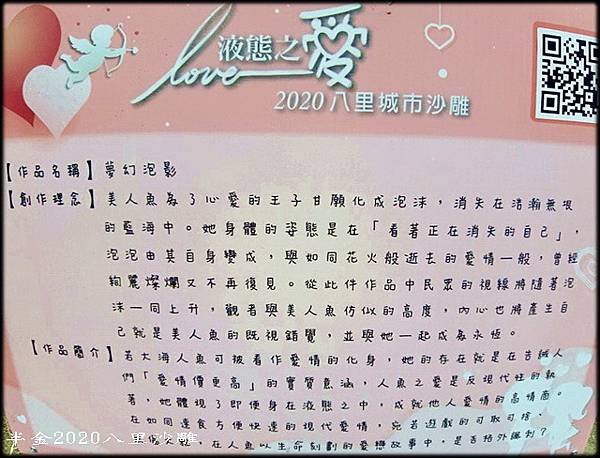 液態之愛
love
2020八里城市沙雕
【作品名稱】夢幻泡影
【創作理念】美人魚為了心愛的王子甘願化成泡沫，消失在浩瀚無垠
的藍海中。她身體的姿態是在「看著正在消失的自己」，
泡泡由其自身變成，與如同花火般逝去的愛情一般，曾經
絢麗燦爛又不再復見。從此件作品中民眾的視線將隨著泡
沫一同上升，觀者與美人魚仿似的高度，內心也將產生自
己就是美人魚的既視錯覺，並與她一起成為永恆。
【作品簡介】若大海人魚可被看作愛情的化身，她的存在就是在告誡人
們「愛情價更高」的實質意涵，人魚之愛是反現代性的執
著，她體現了即便身在液態之中，成就他人愛情的高情面。
在如同速食方便快速的現代愛情，宛若遊戲的可取可捨，
在人魚以生命刻劃的愛戀故事中，是否格外諷刺？
半金2020八里沙雕